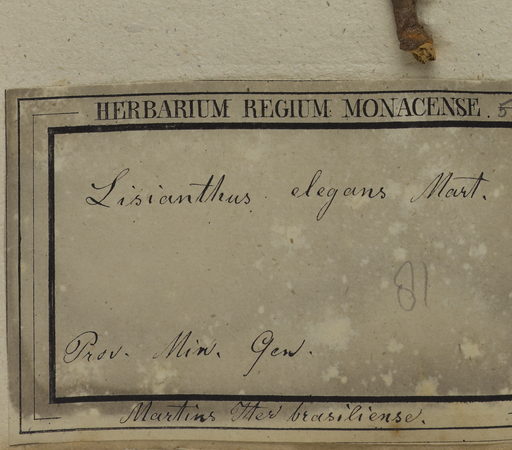 HERBARIUM REGIUM MONACENSE.
Lisianthus elegans Mart.
Prov. Min. Gen.
Martius Iter brasiliense.